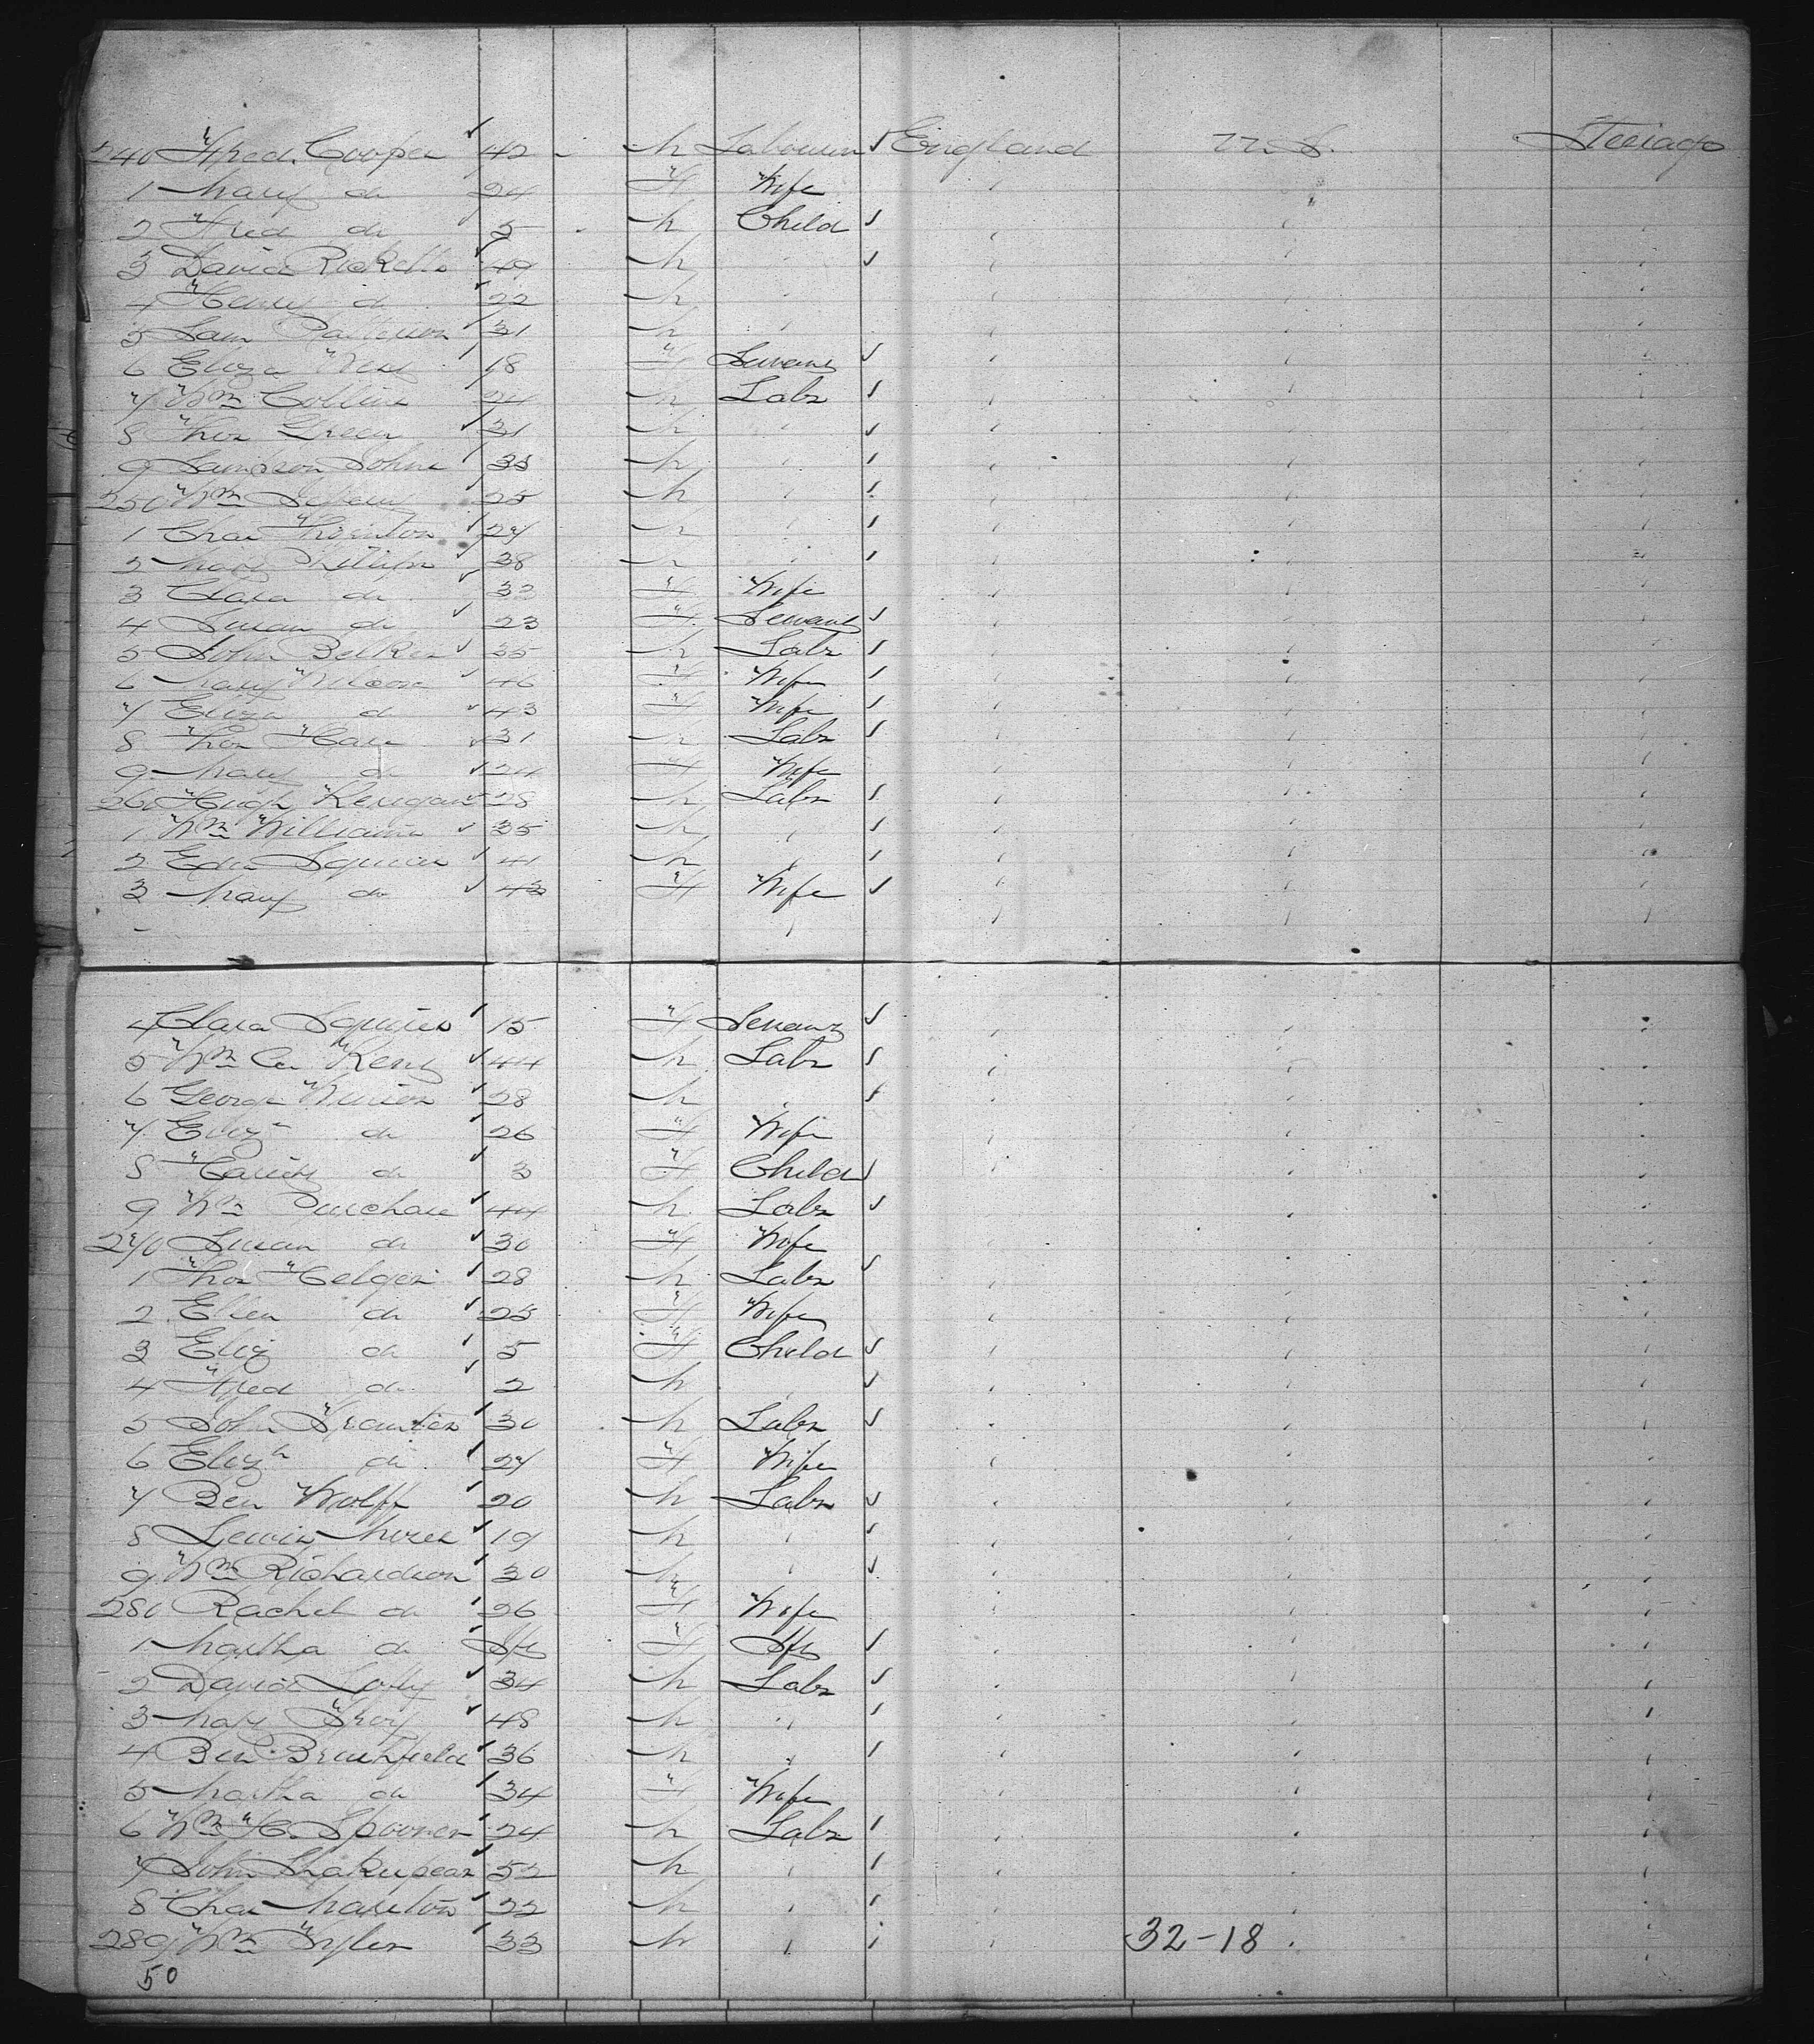 240 Fred. Cooper 42 M Labourer England U.S. Steerage
1 Mary do 24 F Wife
2 Fred do 5 M Child
3 David Ricketts 49 M "
4 Henry do 22 M "
5 Sam Patterson 31 M "
6 Eliza West 18 F Servant
7 Wm Collins 24 M Labr
8 Thos Green 31 M "
9 Sampson Johns 35 M "
250 Wm 25 M "
1 Chas Thornton 27 M "
2 Phillips 38 M "
3 Clara do 33 F Wife
4 Susan do 23 F Servant
5 John Belker 35 M Labr
6 Mary Wilson 46 F Wife
7 Eliza do 43 F Wife
8 Thos Hare 31 M Labr
9 Mary do 24 F Wife
260 Hugh Kerrigan 28 M Labr
1 Wm Williams 35 M "
2 Edw Squires 41 M "
3 Mary do 43 F Wife
4 Clara Squires 15 F Servant
5 Wm Kent 44 M Labr
6 George Winson 28 M "
7 Elizh do 26 F Wife
8 do 3 F Child
9 Wm Purchase 44 M Labr
270 Susan do 30 F Wife
1 Thos Helger 28 M Labr
2 Ellen do 25 F Wife
3 Eliz do 5 F Child
4 Fred do 2 M "
5 John Tranter 30 M Labr
6 Elizh do 27 F Wife
7 Ben Wolff 20 M Labr
8 Lewis 19 M "
9 Wm Richardson 30 M "
280 Rachel do 26 F Wife
1 Martha do Inft F Inft
2 David Lofty 34 M Labr
3 Troy 48 M "
4 Ben Brushfield 36 M "
5 Martha do 34 F Wife
6 Wm H. Spooner 24 M Labr
7 John Shakespear 52 M "
8 Chas 22 M "
289 Wm Tyler 33 M " 32-18
50